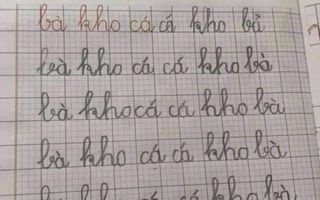 bà kho cá cá kho bà
bà kho cá cá kho bà
bà kho cá cá kho bà
bà kho cá cá kho bà
bà kho cá cá kho bà